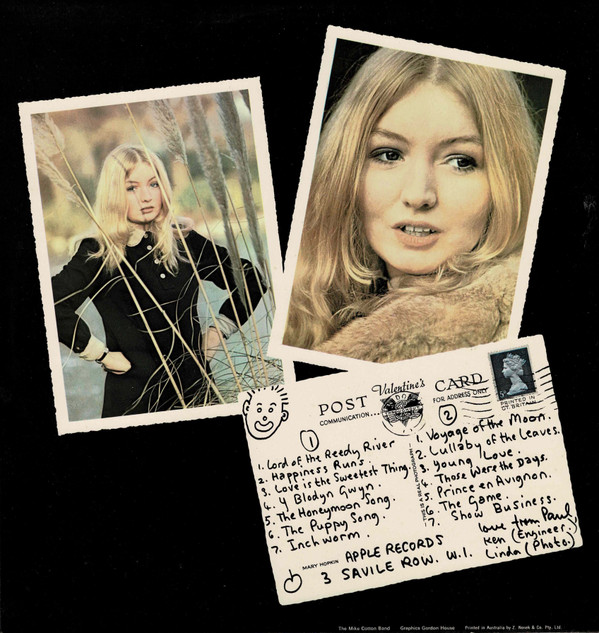 POST CARD
Valentine's
COMMUNICATION...
FOR ADDRESS ONLY
PRINTED IN
GT. BRITAIN
THIS IS A REAL PHOTOGRAPH
1
1. Lord of the Reedy River
2. Happiness Runs.
3. Love is the Sweetest Thing.
4. Y Blodyn Gwyn.
5. The Honeymoon Song.
6. The Puppy Song.
7. Inch worm.
2
1. Voyage of the Moon.
2. Lullaby of the Leaves.
3. Young Love.
4. Those Were the Days.
5. Prince en Avignon.
6. The Game.
7. Show Business.
love from Paul,
Ken (Engineer)
Linda (Photo.)
MARY HOPKIN
APPLE RECORDS
3 SAVILE ROW. W.1.
The Mike Cotton Band Graphics Gordon House Printed in Australia by J. Novak & Co. Pty. Ltd.